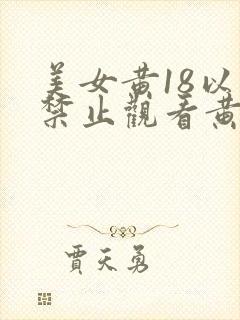 美女黄18以
禁止觀看黄
賈天勇